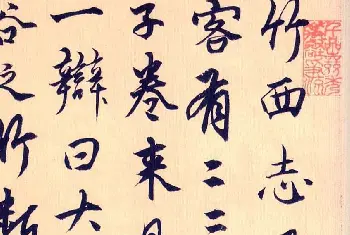 竹西志
客有二三
子卷来見
一辩曰大
谷之竹斬